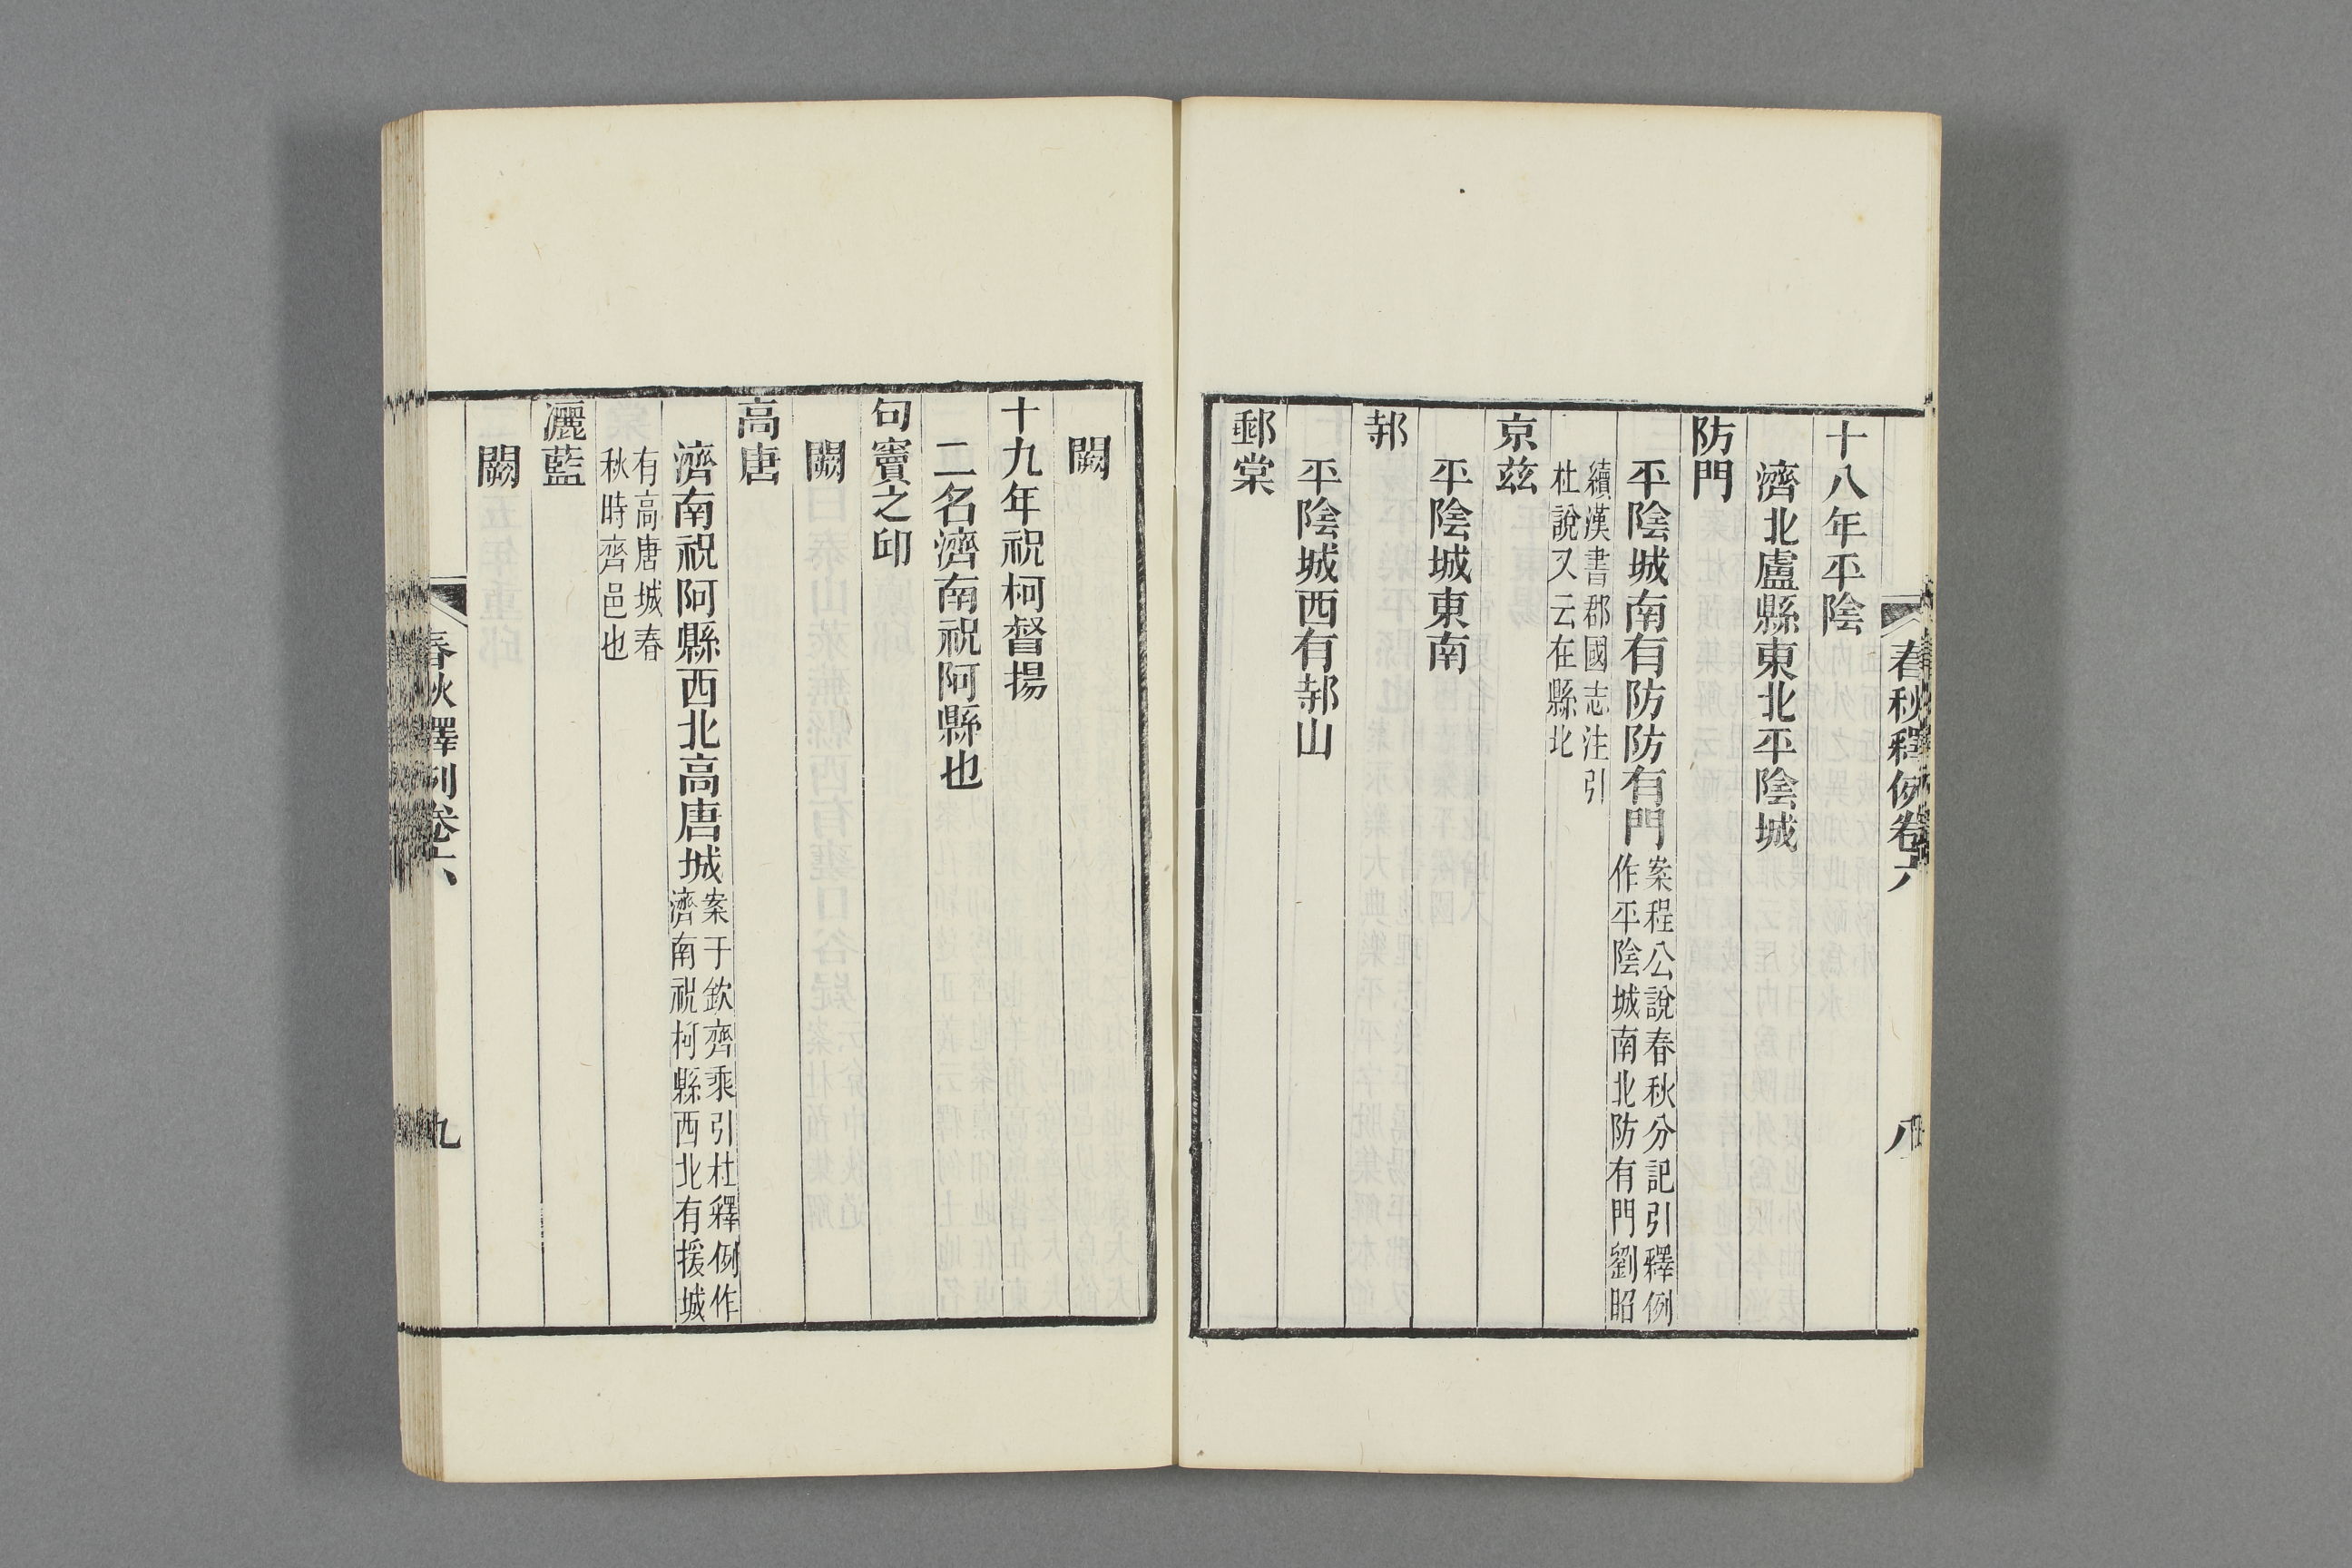 春秋釋例卷六
八
十八年平陰
濟北盧縣東北平陰城
防門
平陰城南有防防有門案程公說春秋分記引釋例
作平陰城南北防有門劉昭
續漢書郡國志注引
杜說又云在縣北
京兹
平陰城東南
邿
平陰城西有邿山
郵棠
闕
十九年祝柯督揚
二名濟南祝阿縣也
句竇之邱
闕
高唐
濟南祝阿縣西北高唐城案于欽齊乘引杜釋例作
濟南祝柯縣西北有援城
有高唐城春
秋時齊邑也
灑藍
闕
春秋釋例卷六
九